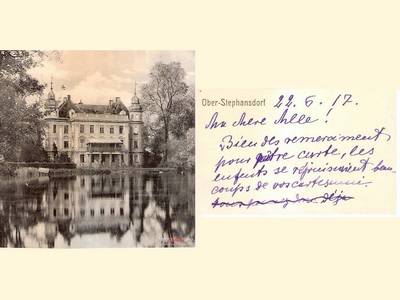 Ober-Stephansdorf 22.6.17.
Ma chere Melle!
Bien des remerciment
pour vôtre carte, les
enfants se rejouissaient beau-
coups de vos cartes